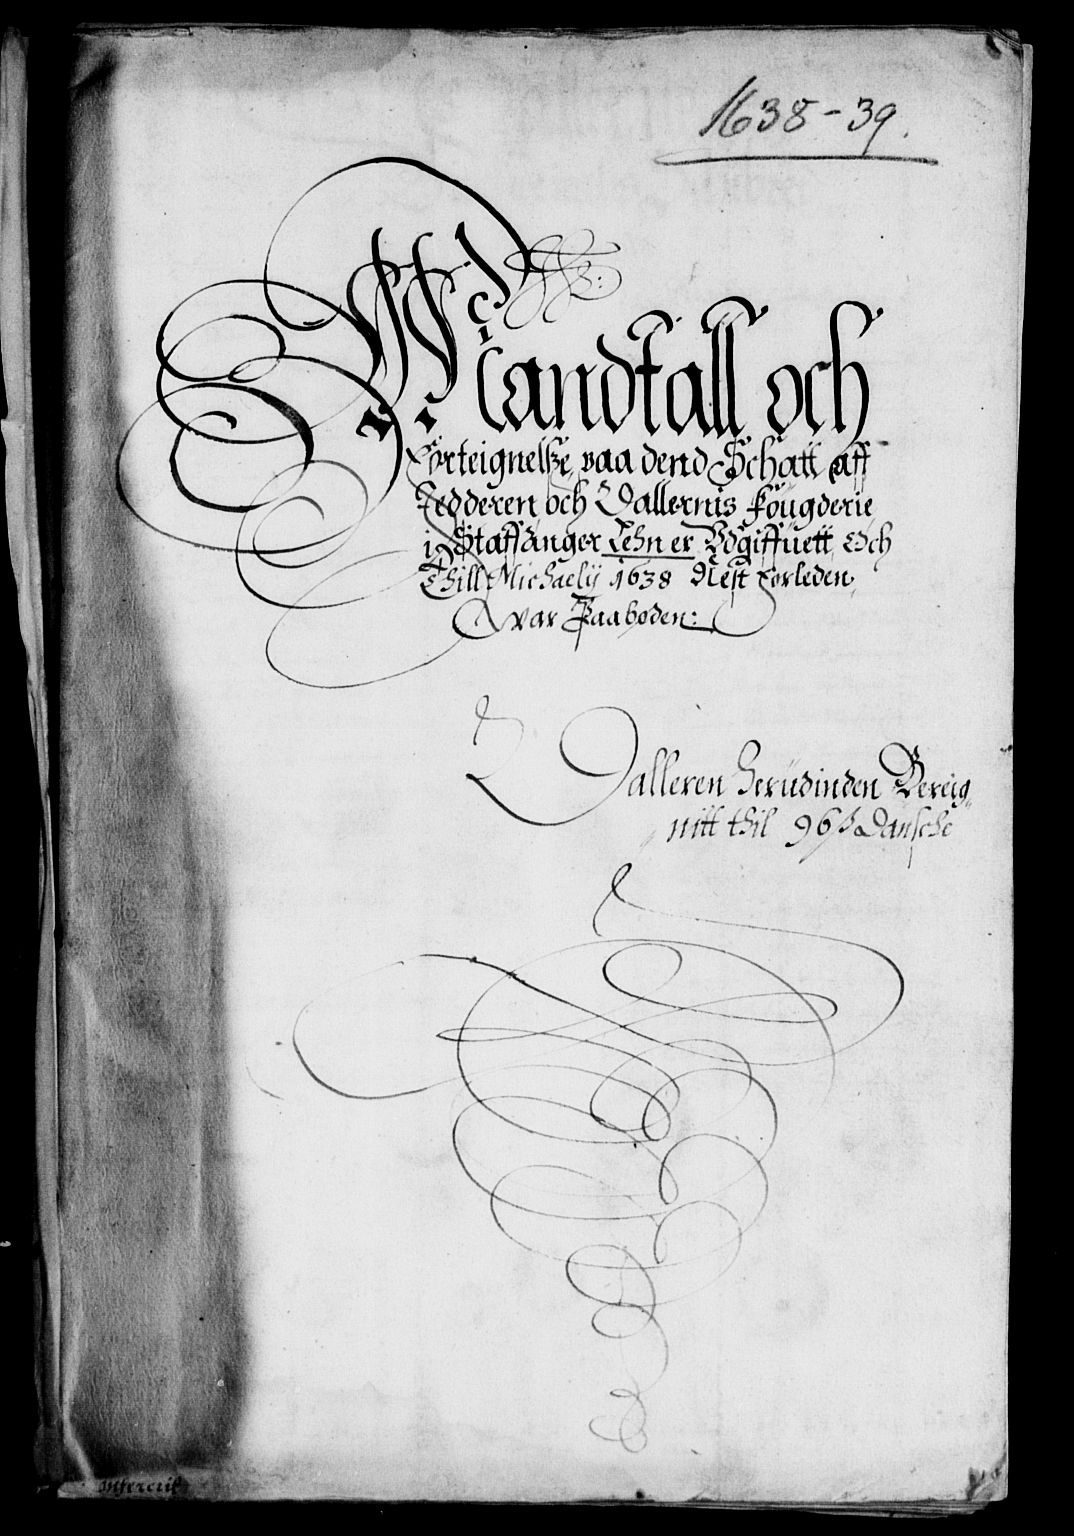 1638-39.
Mandtall och
Forteignelse paa dend Schatt aff
Jedderen och Dallernis fougderie
i Staffanger Lehn er Vdgiffuett Och
Thill Michaelij 1638 Nest forleden,
war Paaboden:
Dalleren herudinden Bereig-
nitt thil 96 ß Dansche